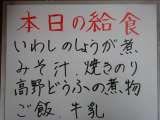 本日の給食
いわしのしょうが煮
みそ汁.焼きのり
高野どうふの煮物
ご飯.牛乳